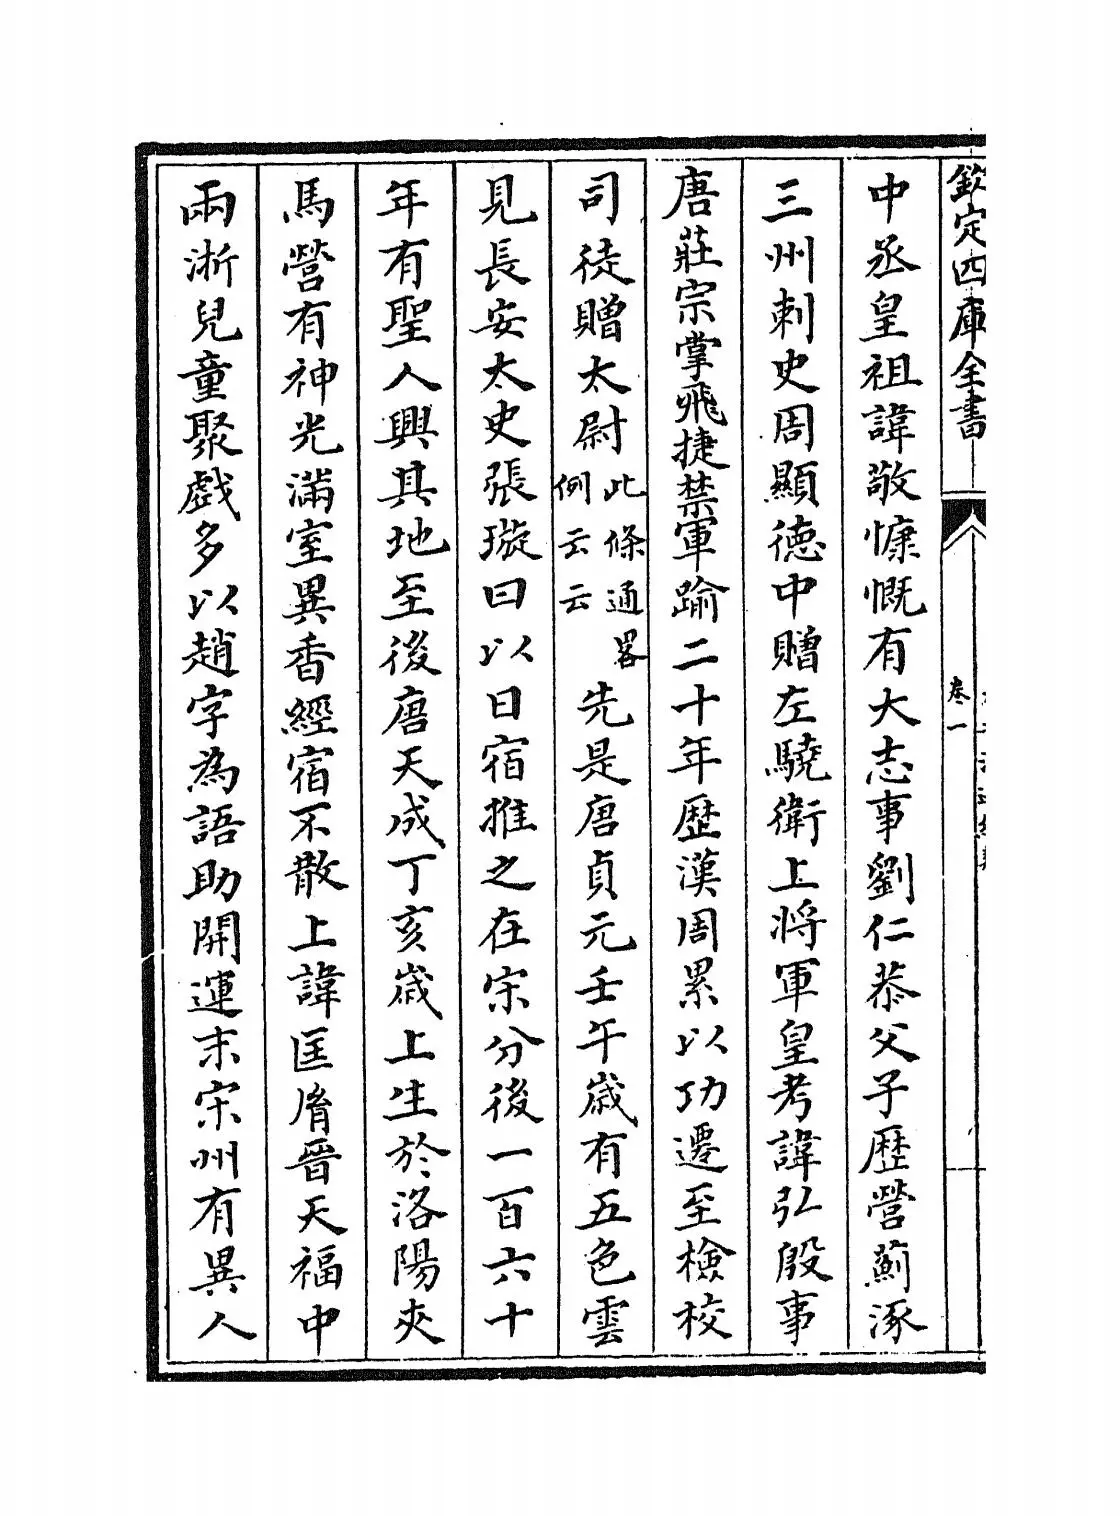 欽定四庫全書
卷一
中丞皇祖諱敬慷慨有大志事劉仁恭父子歷營薊涿
三州刺史周顯德中贈左驍衛上將軍皇考諱弘殷事
唐莊宗掌飛捷禁軍踰二十年歷漢周累以功遷至檢校
司徒贈太尉此條通畧例云云先是唐貞元壬午歲有五色雲
見長安太史張璇曰以日宿推之在宋分後一百六十
年有聖人興其地至後唐天成丁亥歲上生於洛陽夾
馬營有神光滿室異香經宿不散上諱匡胤晉天福中
兩浙兒童聚戲多以趙字為語助開運末宋州有異人